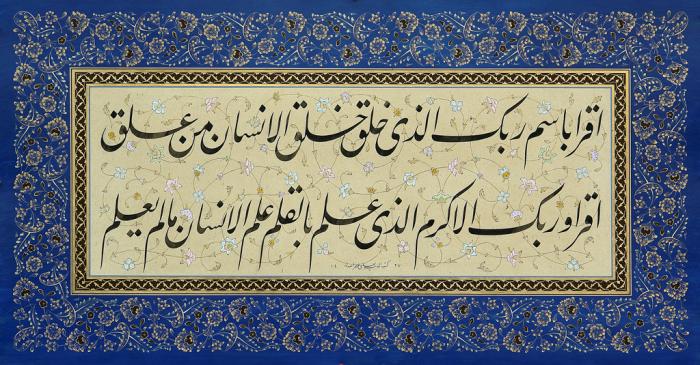 اقرا باسم ربک الذی خلق خلق الانسان من علق
اقرا و ربک الاکرم الذی علم بالقلم علم الانسان مالم یعلم